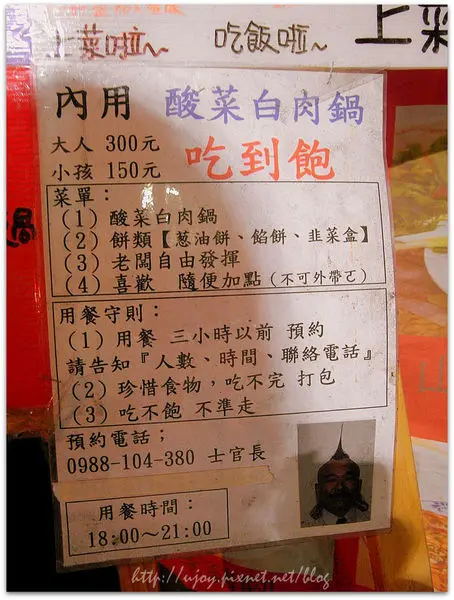 上菜啦~ 吃飯啦~ 上菜
內用 酸菜白肉鍋
大人 300元
小孩 150元
吃到飽
菜單：
(1) 酸菜白肉鍋
(2) 餅類【葱油餅、餡餅、韭菜盒】
(3) 老闆自由發揮
(4) 喜歡 隨便加點(不可外帶ㄛ)
用餐守則：
(1) 用餐 三小時以前 預約
請告知『人數、時間、聯絡電話』
(2) 珍惜食物，吃不完 打包
(3) 吃不飽 不準走
預約電話；
0988-104-380 士官長
用餐時間：
18:00～21:00
http://ujoy.pixnet.net/blog